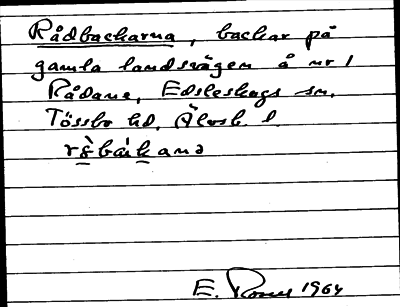 Rådbackarna, backar på
gamla landsvägen å nr 1
Rådane, Edsleskogs sn.
Tössbo hd. Älvsb. l.
E. 1964